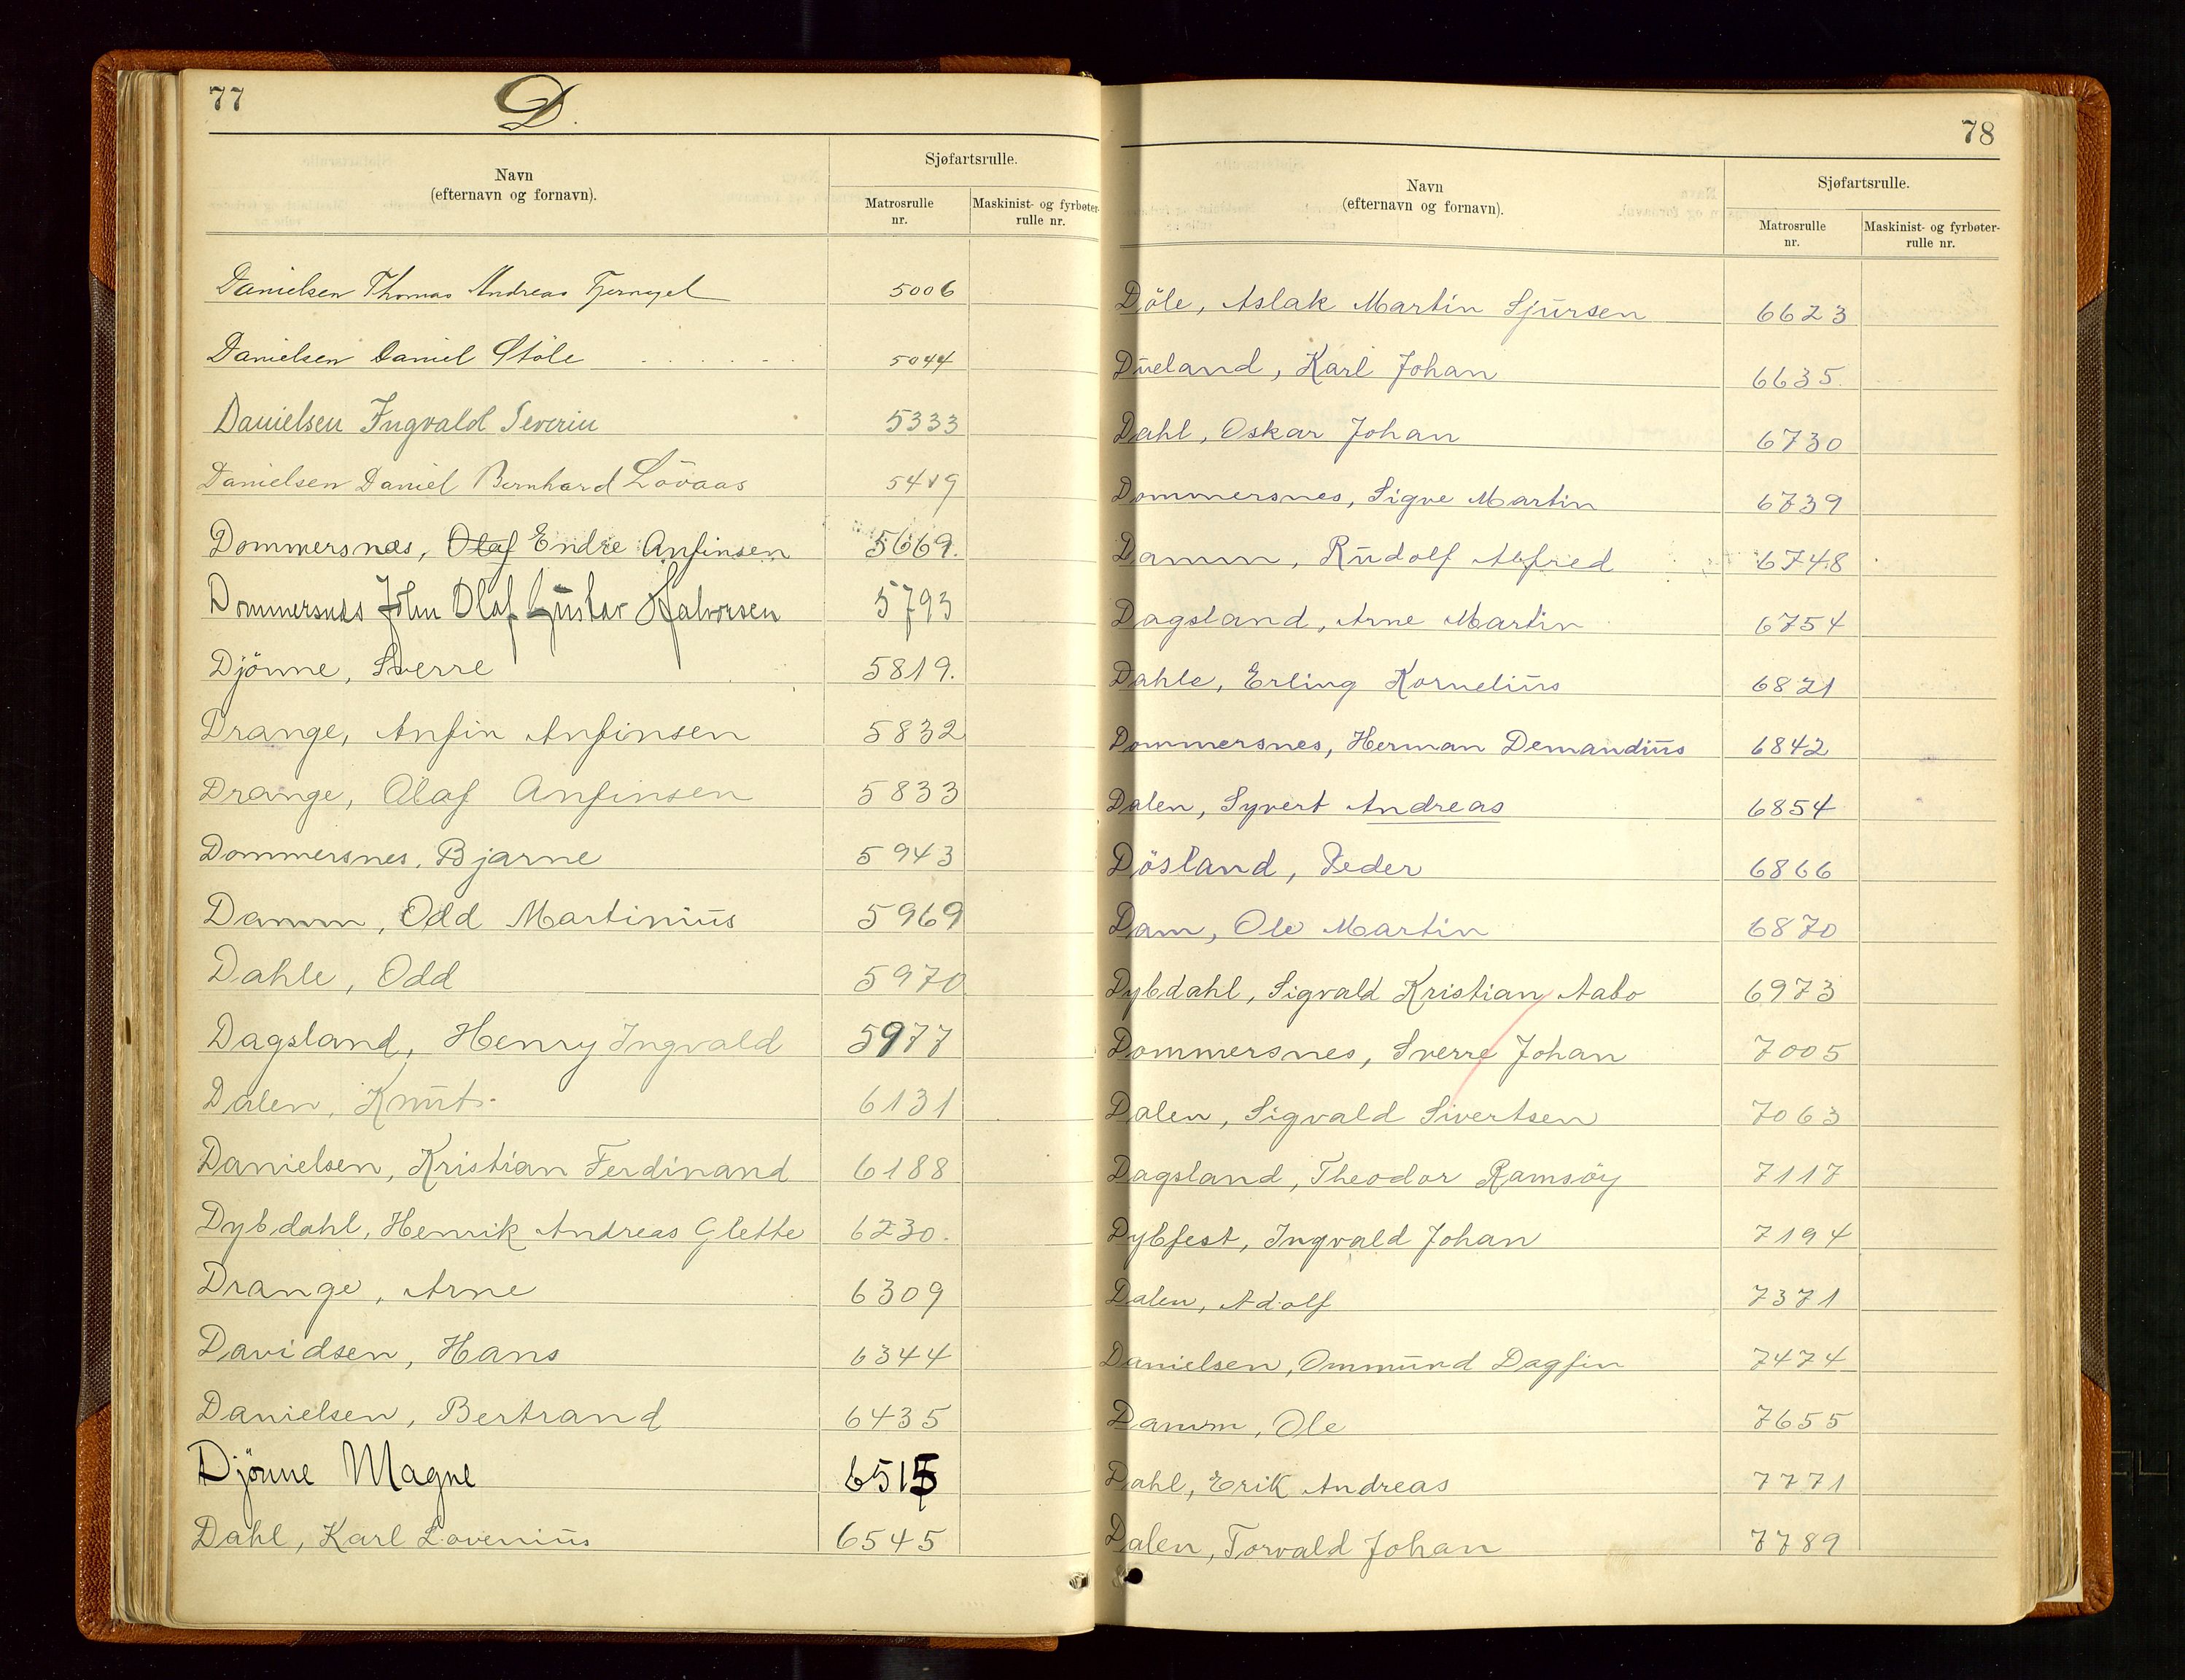 77
D.
Navn
(efternavn og fornavn).
Sjøfartsrulle.
Matrosrulle
nr.
Maskinist- og fyrbøter-
rulle nr.
Danielsen Thomas Andreas 5006
Danielsen Daniel Støle 5044
Danielsen Ingvald Severin 5333
Danielsen Daniel Bernhard Lövaas 5419
Dommersnæs, Olaf Endre Anfinsen 5669.
Dommersnæs John Olaf Gustav Halvorsen 5793
Djönne, Sverre 5819.
Drange, Anfin Anfinsen 5832
Drange, Olaf Anfinsen 5833
Dommersnes, Bjarne 5943
Damm, Odd Martinius 5969
Dahle, Odd 5970
Dagsland, Henry Ingvald 5977
Dalen, Knut. 6131
Danielsen, Kristian Ferdinand 6188
Dybdahl, Henrik Andreas Glette 6230.
Drange, Arne 6309
Davidsen, Hans 6344
Danielsen, Bertrand 6435
Djönne Magne 6515
Dahl, Karl Lovenius 6545
78
Navn
(efternavn og fornavn).
Sjøfartsrulle.
Matrosrulle
nr.
Maskinist- og fyrbøter-
rulle nr.
Döle, Aslak Martin Sjursen 6623
Dueland, Karl Johan 6635.
Dahl, Oskar Johan 6730
Dommersnes, Sigve Martin 6739
Damm, Rudolf Alfred 6748
Dagsland, Arne Martin 6754
Dahle, Erling Kornelius 6821
Dommersnes, Herman Demandius 6842
Dalen, Syvert Andreas 6854
Dösland, Peder 6866
Dam, Ole Martin 6870
Dybdahl, Sigvald Kristian Aabo 6973
Dommersnes, Sverre Johan 7005
Dalen, Sigvald Sivertsen 7063
Dagsland, Theodor Ramsöy 7117
Dybfest, Ingvald Johan 7194
Dalen, Adolf 7371
Danielsen, Ommund Dagfin 7474
Damm, Ole 7655
Dahl, Erik Andreas 7771
Dalen, Torvald Johan 7789